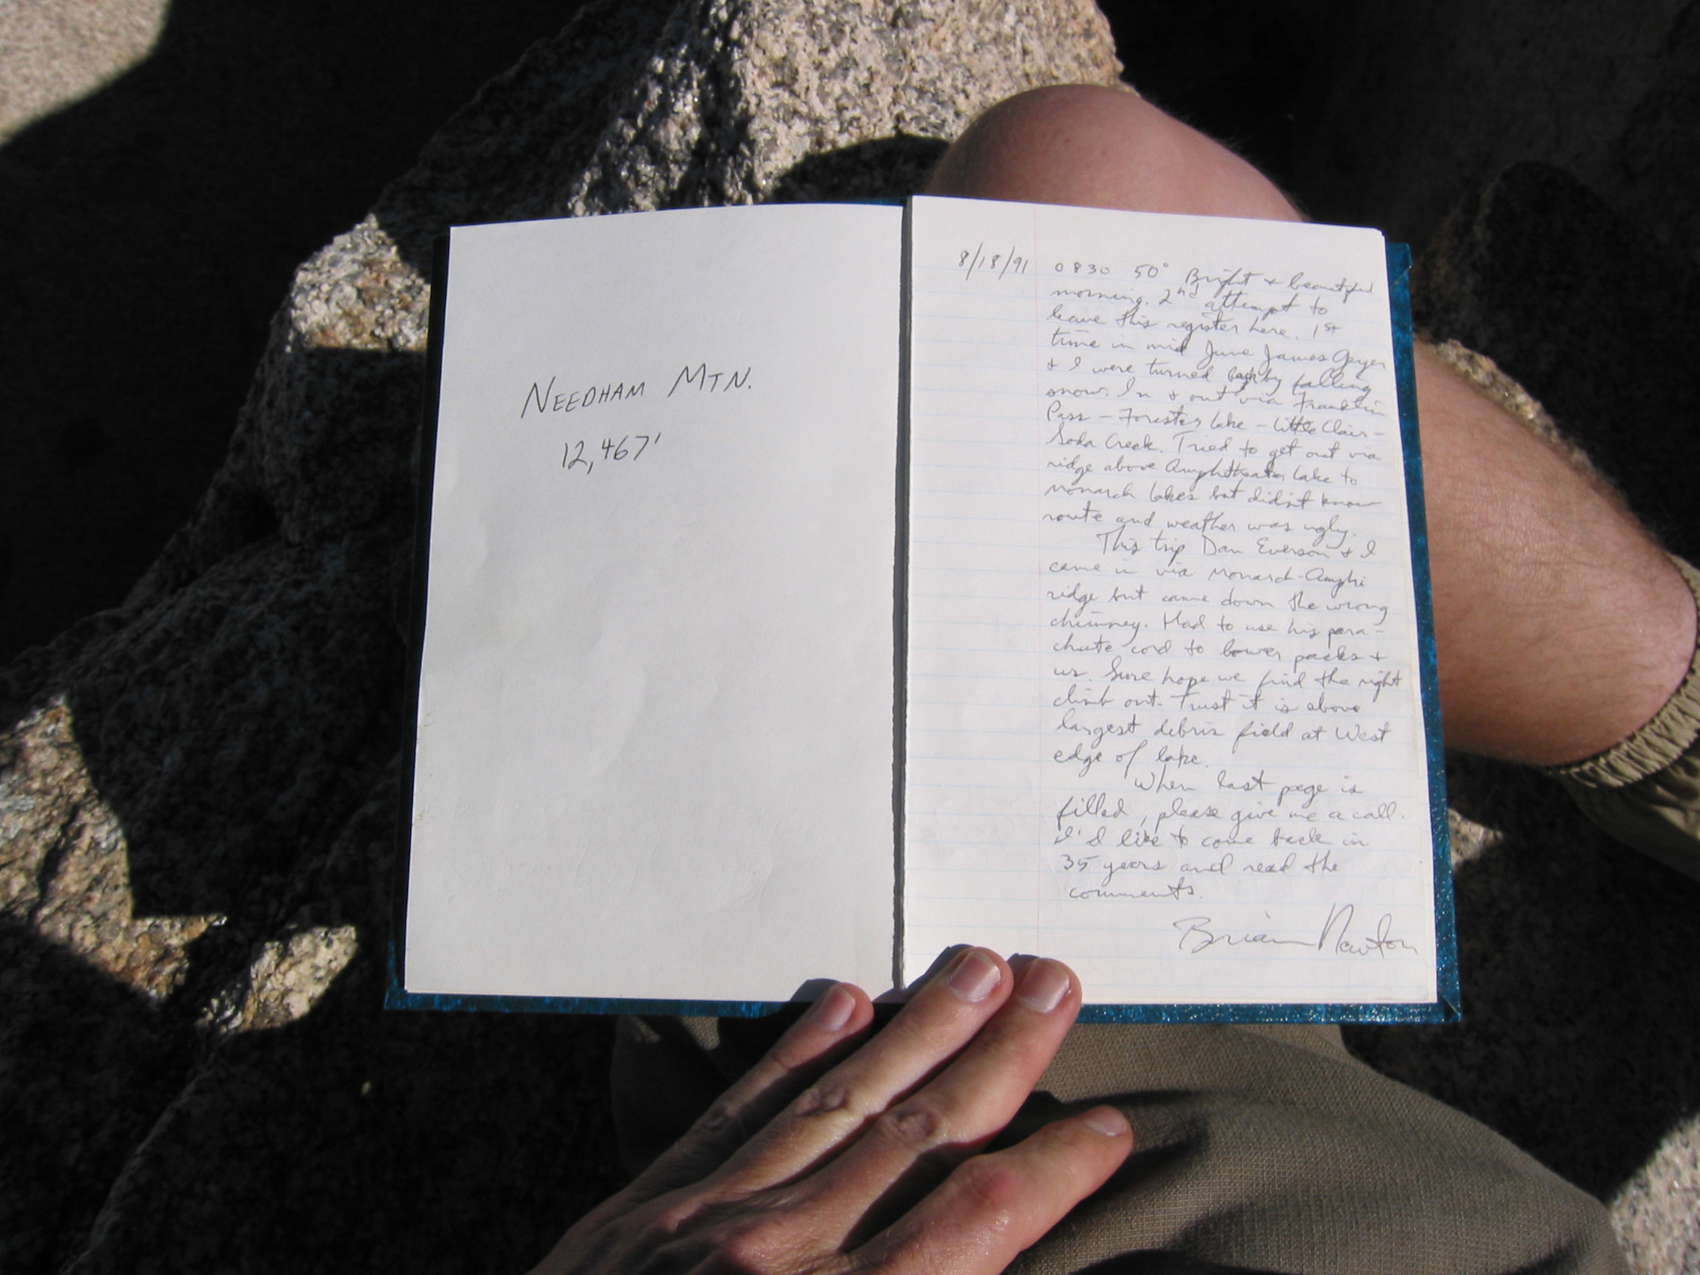 NEEDHAM MTN.
12,467'
8/18/91 0830 50° Bright & beautiful
morning. 2nd attempt to
leave this register here. 1st
time in mid June James Geyer
& I were turned back by falling
snow. In & out via Franklin
Pass - Forester Lake - Little Clair -
Soda Creek. Tried to get out via
ridge above Amphitheater Lake to
Monarch Lakes but didn't know
route and weather was ugly.
This trip Dan Everson & I
came in via Monarch-Amphi
ridge but came down the wrong
chimney. Had to use his para-
chute cord to lower packs &
us. Sure hope we find the right
climb out. Trust it is above
largest debris field at West
edge of lake.
When last page is
filled, please give me a call.
I'd like to come back in
35 years and read the
comments.
Brian Newton